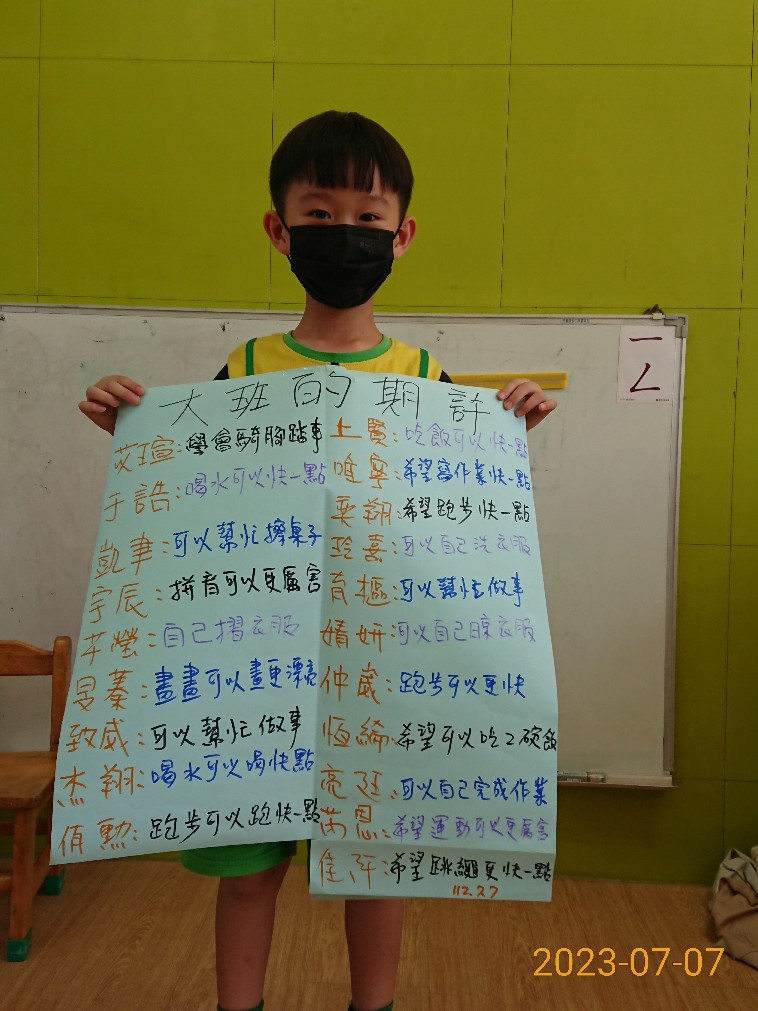 ㄧ
ㄥ
大班的期許
苡瑄:學會騎腳踏車
于誥:喝水可以快一點
凱聿:可以幫忙擦桌子
宇辰:拼音可以更厲害
芊瑩:自己摺衣服
旻蓁:畫畫可以畫更漂亮
致威:可以幫忙做事
杰翔:喝水可以喝快點
佰勳:跑步可以跑快一點
上賢:吃飯可以快一點
唯寧:希望寫作業快一點
奕翔:希望跑步快一點
玲熹:可以自己洗衣服
育樞:可以幫忙做事
婧妍:可以自己晾衣服
仲崴:跑步可以更快
恆綸:希望可以吃2碗飯
亮廷:可以自己完成作業
芮恩:希望運動可以更厲害
佳阡:希望跳繩更快一點
112.7.7
2023-07-07